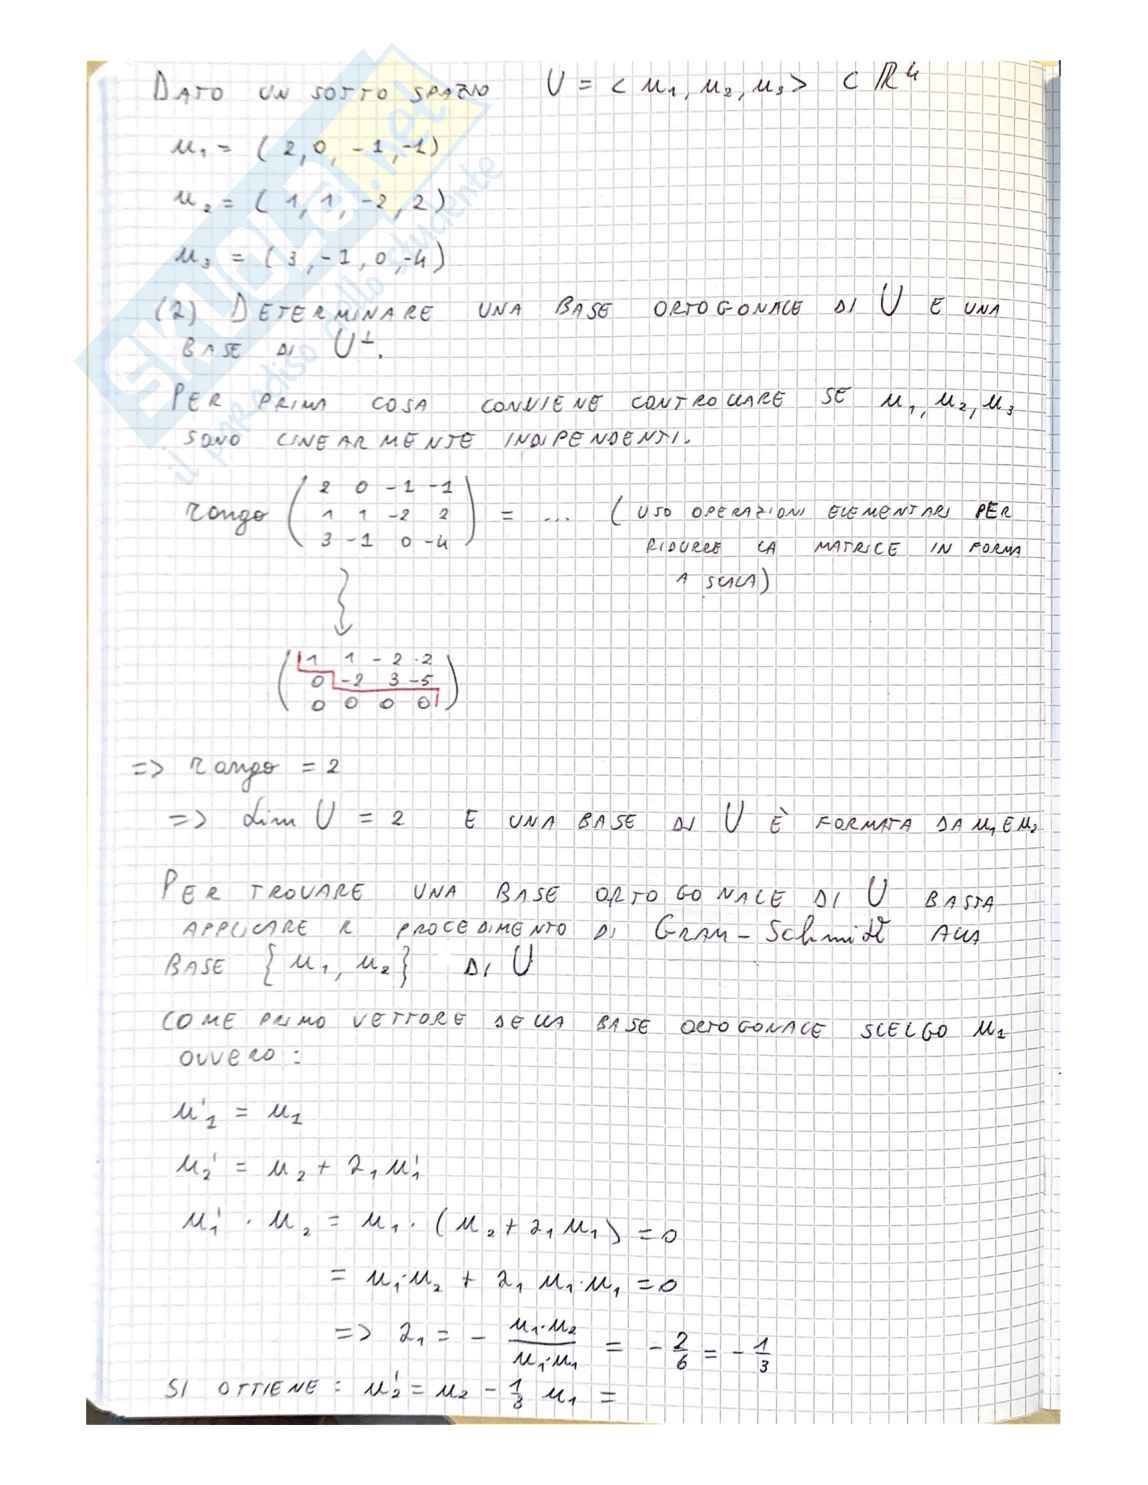 DATO UN SOTTO SPAZIO U = < u₁, u₂, u₃ > ⊂ ℝ⁴
u₁ = ( 2, 0, -1, -1)
u₂ = ( 1, 1, -2, 2)
u₃ = ( 3, -1, 0, -4)
(2) DETERMINARE UNA BASE ORTOGONALE DI U E UNA
BASE DI U⊥.
PER PRIMA COSA CONVIENE CONTROLLARE SE u₁, u₂, u₃
SONO LINEARMENTE INDIPENDENTI.
rango ( 2 0 -1 -1 ; 1 1 -2 2 ; 3 -1 0 -4 ) = ... ( USO OPERAZIONI ELEMENTARI PER
RIDURRE LA MATRICE IN FORMA
A SCALA)
( 1 1 -2 2
0 -2 3 -5
0 0 0 0 )
=> rango = 2
=> dim U = 2 E UNA BASE DI U È FORMATA DA u₁ E u₂
PER TROVARE UNA BASE ORTOGONALE DI U BASTA
APPLICARE IL PROCEDIMENTO DI GRAM-Schmidt ALLA
BASE { u₁, u₂ } DI U
COME PRIMO VETTORE DELLA BASE ORTOGONALE SCELGO u₁
OVVERO :
u'₁ = u₁
u₂' = u₂ + λ₁ u₁'
u₁' · u₂ = u₁ · ( u₂ + λ₁ u₁ ) = 0
= u₁·u₂ + λ₁ u₁·u₁ = 0
=> λ₁ = - u₁·u₂ / u₁·u₁ = - 2/6 = - 1/3
SI OTTIENE : u₂' = u₂ - 1/3 u₁ =
SKUOLA.net
il paradiso dello studente